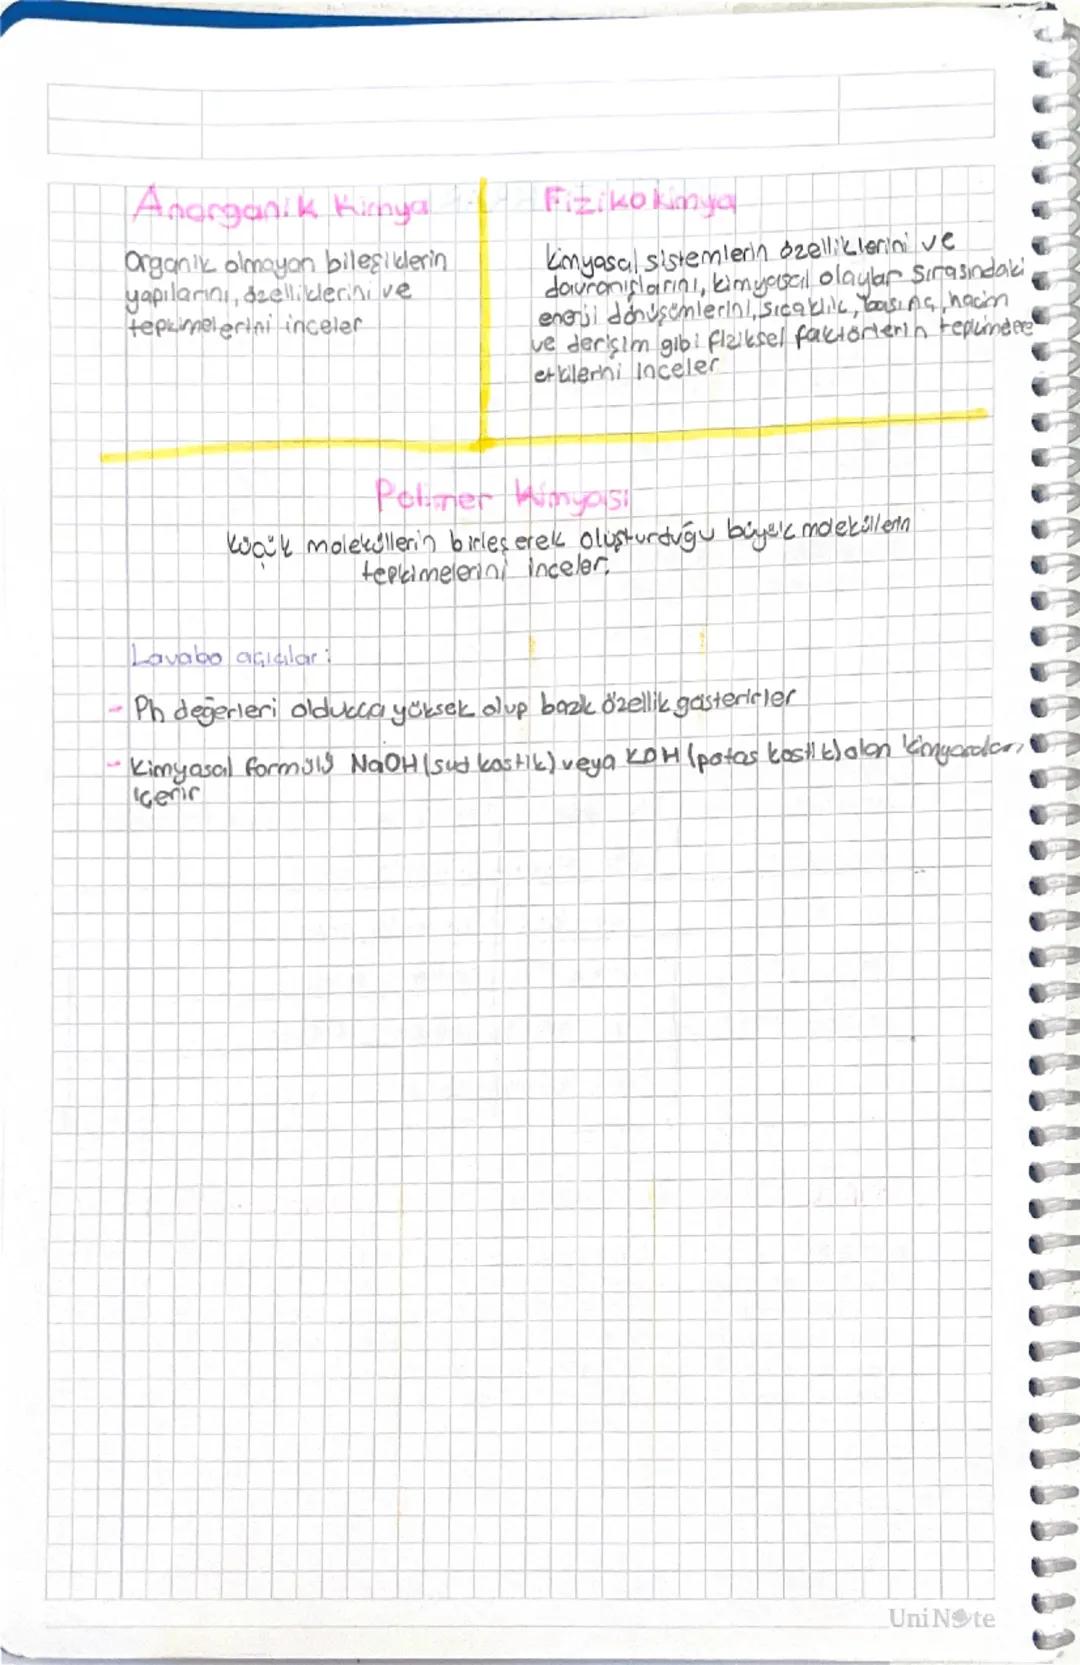 Anorganik Kimya
Organik olmayan bileşiklerin
yapılarını, özelliklerini ve
tepkimelerini inceler
Fizikokimya
kimyasal sistemlerin özelliklerini ve
davranışlarını, kimyasal olaylar sırasındaki
enerji dönüşümlerini, sıcaklık, basınç, hacim
ve derişim gibi fiziksel faktörlerin
etkilerini inceler
Polimer Kimyası
küçük moleküllerin birleşerek oluşturduğu büyük moleküllerin
tepkimelerini inceler.
Lavabo açıcılar:
- Ph değerleri oldukca yüksek olup bazik özellik gösterirler
- Kimyasal formülü NaOH (sud kostik) veya KOH (potas kostik) olan kimyasalları
içerir
UniNote